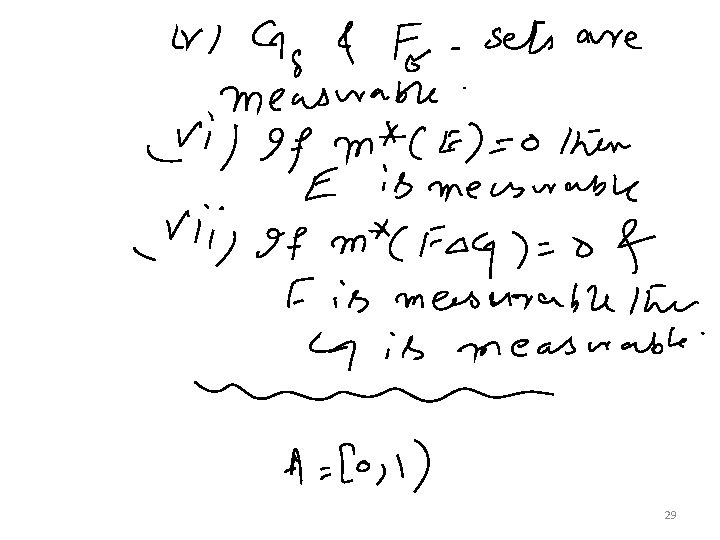 (v) G_δ & F_σ - sets are
measurable.
vi) If m*(E)=0 then
E is measurable
vii) If m*(FΔG)=0 &
F is measurable then
G is measurable.
A=[0,1)
29